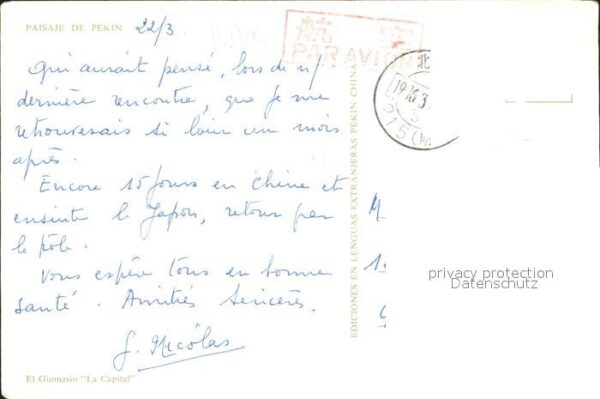 PAISAJE DE PEKIN 22/3
PAR AVION
Qui aurait pensé, lors de n/
dernière rencontre, que je me
retrouverais si loin un mois
après.
Encore 15 jours en Chine et
ensuite le Japon, retour par
le pôle.
Vous espère tous en bonne
santé. Amitiés sincères.
G. Nicolas
El Gimnasio "La Capital"
EDICIONES EN LENGUAS EXTRANJERAS PEKIN CHINA
北
215
M
1
privacy protection
Datenschutz